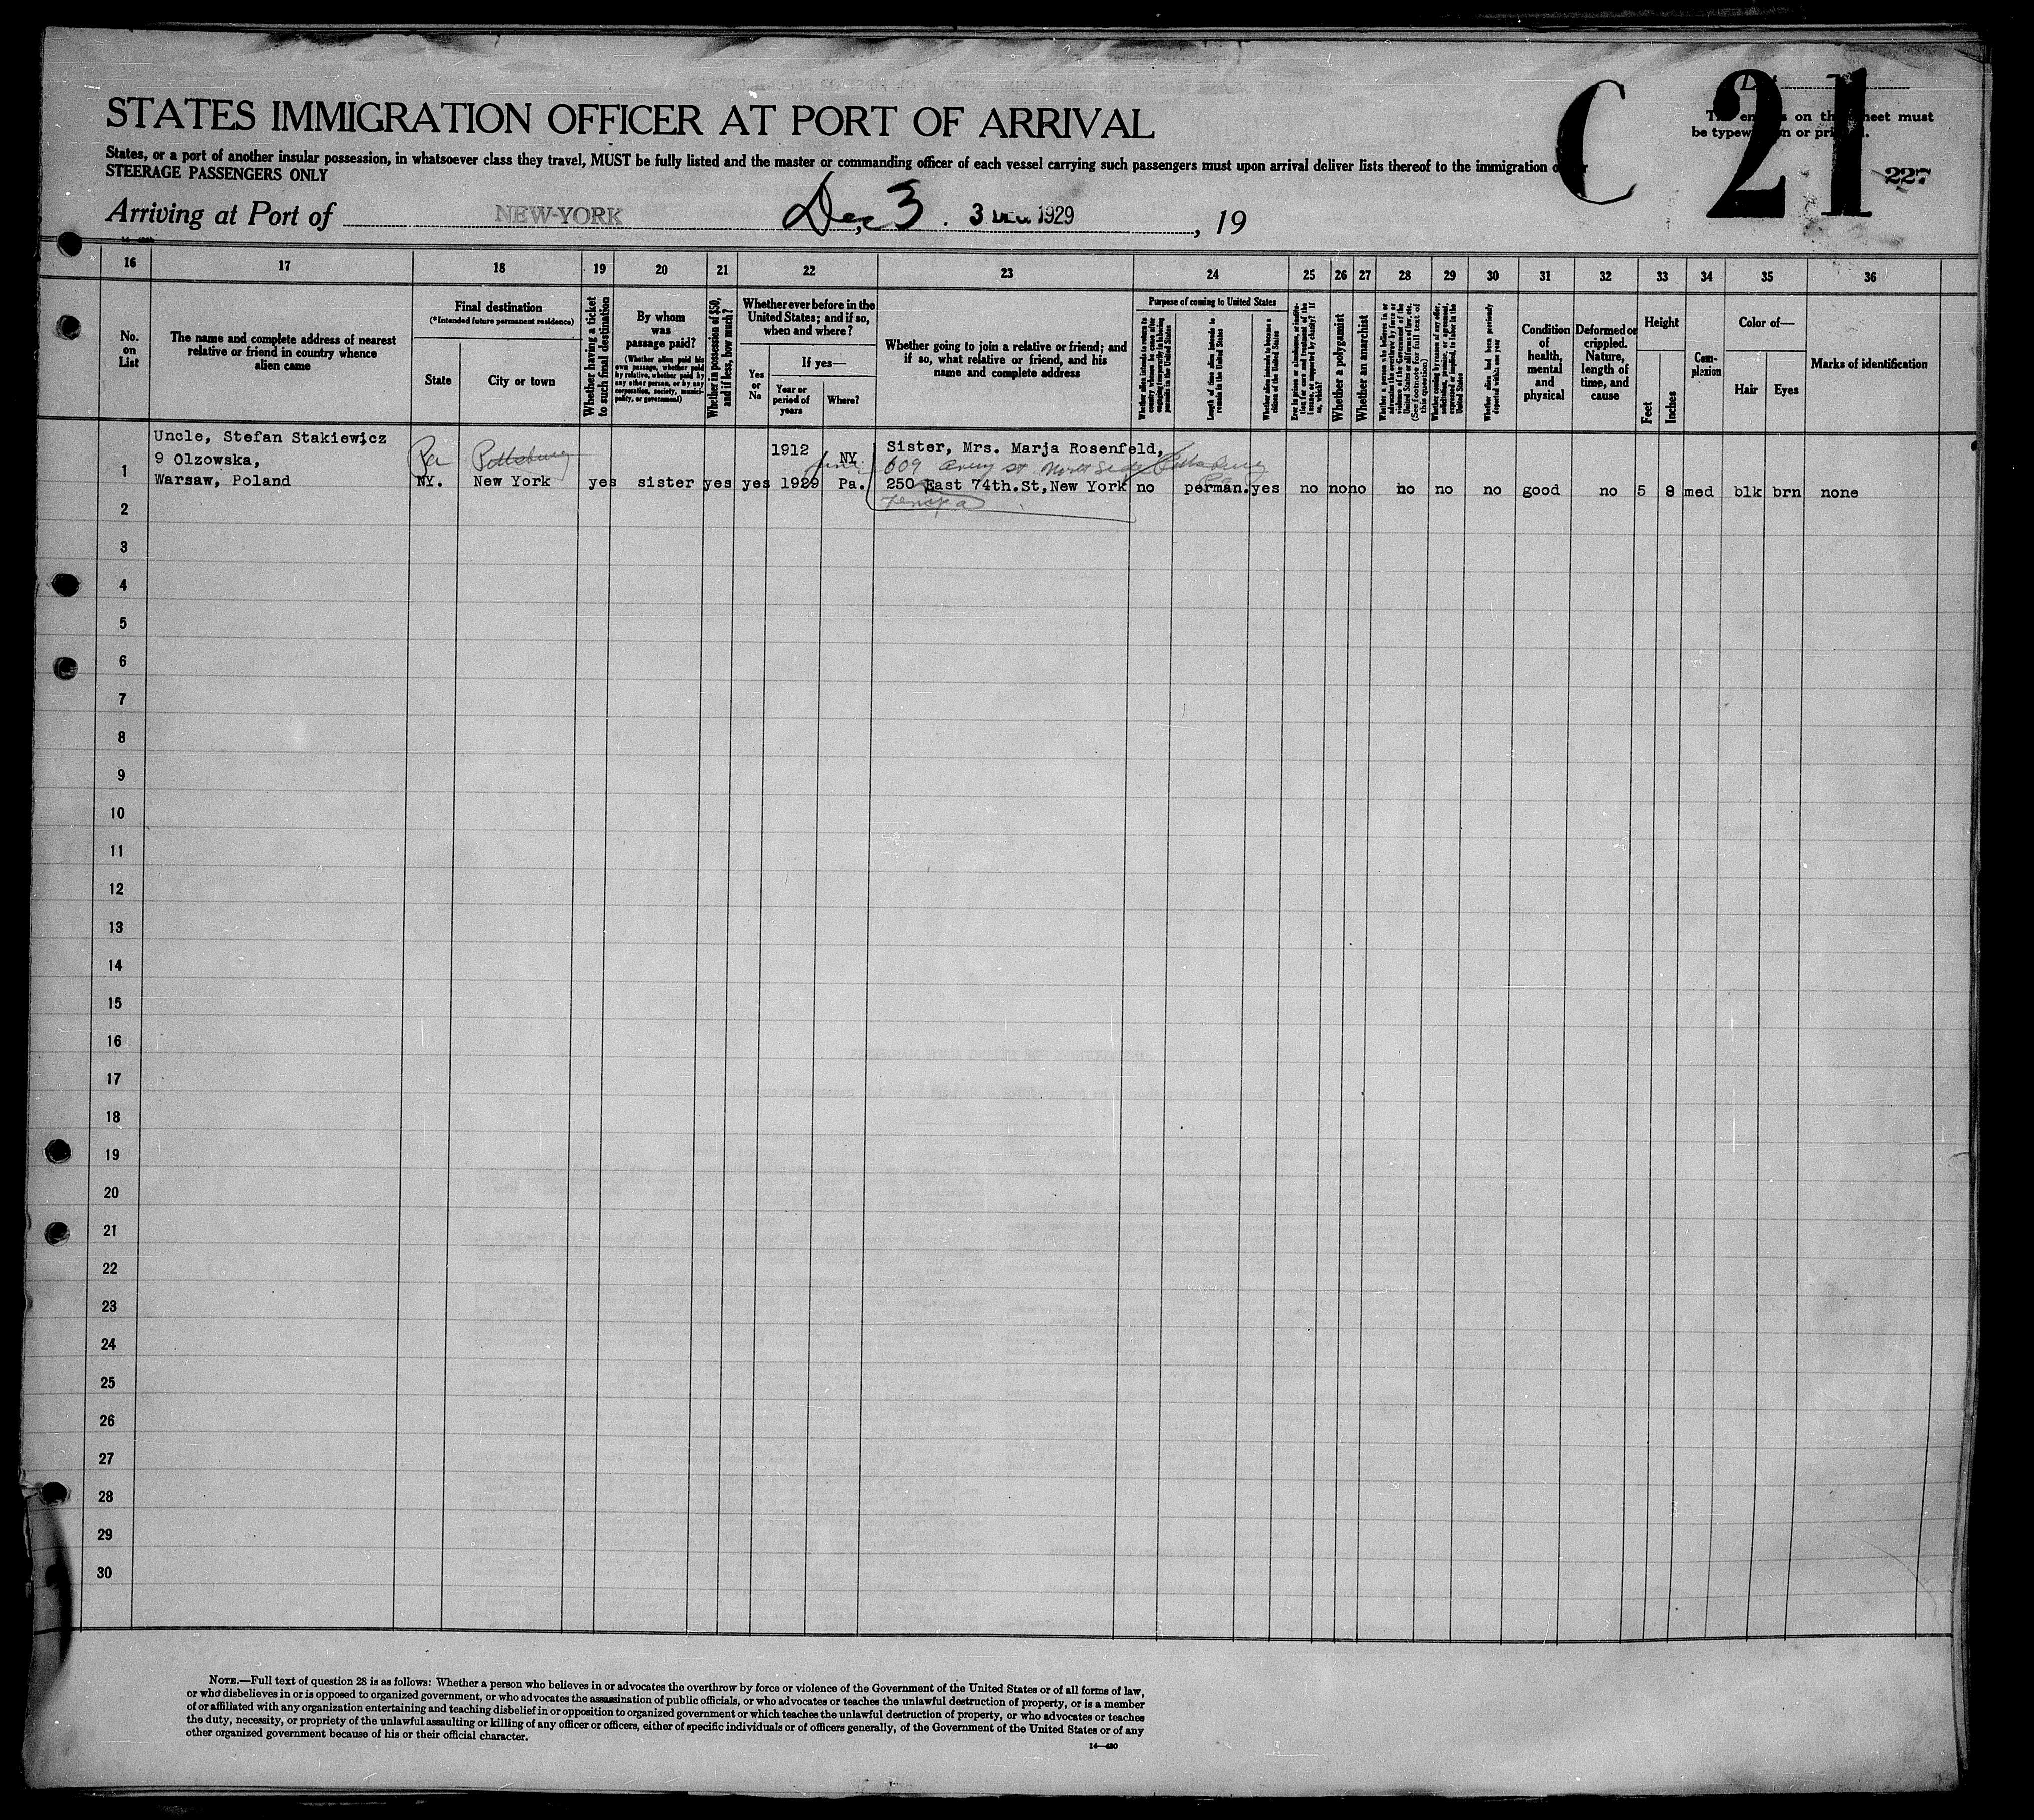 C 21
STATES IMMIGRATION OFFICER AT PORT OF ARRIVAL
The entries on this sheet must
be typewritten or printed.
States, or a port of another insular possession, in whatsoever class they travel, MUST be fully listed and the master or commanding officer of each vessel carrying such passengers must upon arrival deliver lists thereof to the immigration officer
STEERAGE PASSENGERS ONLY
227
Arriving at Port of NEW-YORK Dec 3. 3 DEC 1929, 19
16 17 18 19 20 21 22 23 24 25 26 27 28 29 30 31 32 33 34 35 36
No. on List
The name and complete address of nearest relative or friend in country whence alien came
Final destination
(*Intended future permanent residence)
State
City or town
Whether having a ticket to such final destination
By whom was passage paid?
(Whether alien paid his own passage, whether paid by relative, whether paid by any other person, or by any corporation, society, municipality, or government)
Whether in possession of $50, and if less, how much?
Whether ever before in the United States; and if so, when and where?
Yes or No
If yes—
Year or period of years
Where?
Whether going to join a relative or friend; and if so, what relative or friend, and his name and complete address
Purpose of coming to United States
Whether alien intends to return to country whence he came after engaging temporarily in laboring pursuits in the United States
Length of time alien intends to remain in the United States
Whether alien intends to become a citizen of the United States
Ever in prison or almshouse, or institution for care and treatment of the insane, or supported by charity? If so, which?
Whether a polygamist
Whether an anarchist
Whether a person who believes in or advocates the overthrow by force or violence of the Government of the United States or all forms of law, etc. (See footnote for full text of this question)
Whether coming by reason of any offer, solicitation, promise, or agreement, expressed or implied, to labor in the United States
Whether alien had been previously deported within one year
Condition of health, mental and physical
Deformed or crippled. Nature, length of time, and cause
Height
Feet
Inches
Complexion
Color of—
Hair
Eyes
Marks of identification
Uncle, Stefan Stakiewicz
9 Olzowska,
Warsaw, Poland
Pa Pittsburg
NY. New York yes sister yes yes
1912 NY
June
1929 Pa.
Sister, Mrs. Marja Rosenfeld,
609 Avery St North Side Pittsburg
Pa
250 East 74th.St,New York no perman. yes no no no no no no good no 5 8 med blk brn none
1
2
3
4
5
6
7
8
9
10
11
12
13
14
15
16
17
18
19
20
21
22
23
24
25
26
27
28
29
30
NOTE.—Full text of question 28 is as follows: Whether a person who believes in or advocates the overthrow by force or violence of the Government of the United States or of all forms of law,
or who disbelieves in or is opposed to organized government, or who advocates the assassination of public officials, or who advocates or teaches the unlawful destruction of property, or is a member
of or affiliated with any organization entertaining and teaching disbelief in or opposition to organized government or which teaches the unlawful destruction of property, or who advocates or teaches
the duty, necessity, or propriety of the unlawful assaulting or killing of any officer or officers, either of specific individuals or of officers generally, of the Government of the United States or of any
other organized government because of his or their official character.
14—430